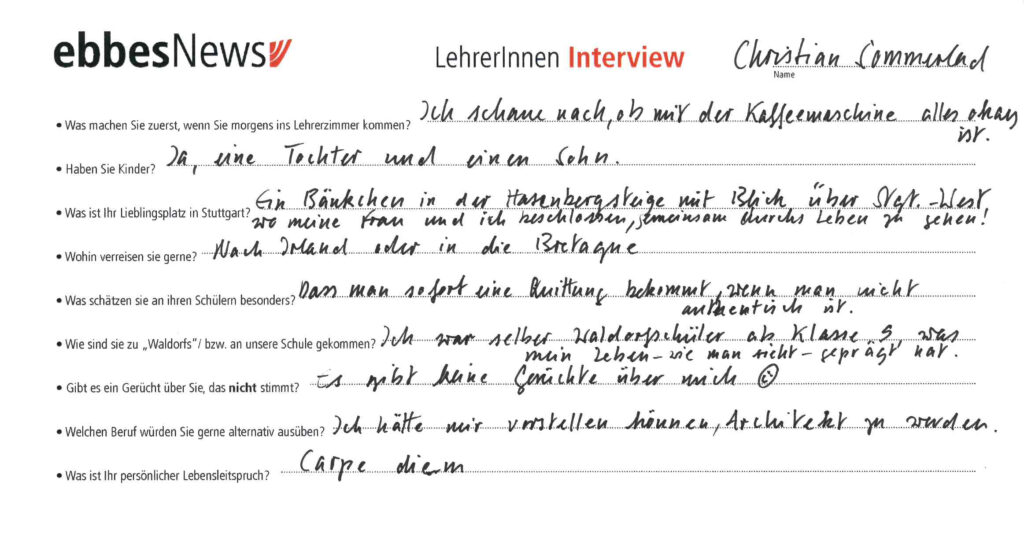 ebbesNews
LehrerInnen Interview
Christian Sommerlad
Name
• Was machen Sie zuerst, wenn Sie morgens ins Lehrerzimmer kommen? Ich schaue nach, ob mit der Kaffeemaschine alles okay
ist.
• Haben Sie Kinder? Ja, eine Tochter und einen Sohn.
• Was ist Ihr Lieblingsplatz in Stuttgart? Ein Bänkchen in der Hasenbergsteige mit Blick über Stgt.-West,
wo meine Frau und ich beschlossen, gemeinsam durchs Leben zu gehen!
• Wohin verreisen sie gerne? Nach Irland oder in die Bretagne
• Was schätzen sie an ihren Schülern besonders? Dass man sofort eine Quittung bekommt, wenn man nicht
authentisch ist.
• Wie sind sie zu „Waldorfs"/ bzw. an unsere Schule gekommen? Ich war selber Waldorfschüler ab Klasse 5, was
mein Leben – wie man sieht – geprägt hat.
• Gibt es ein Gerücht über Sie, das nicht stimmt? Es gibt keine Gerüchte über mich ☺
• Welchen Beruf würden Sie gerne alternativ ausüben? Ich hätte mir vorstellen können, Architekt zu werden.
• Was ist Ihr persönlicher Lebensleitspruch? Carpe diem